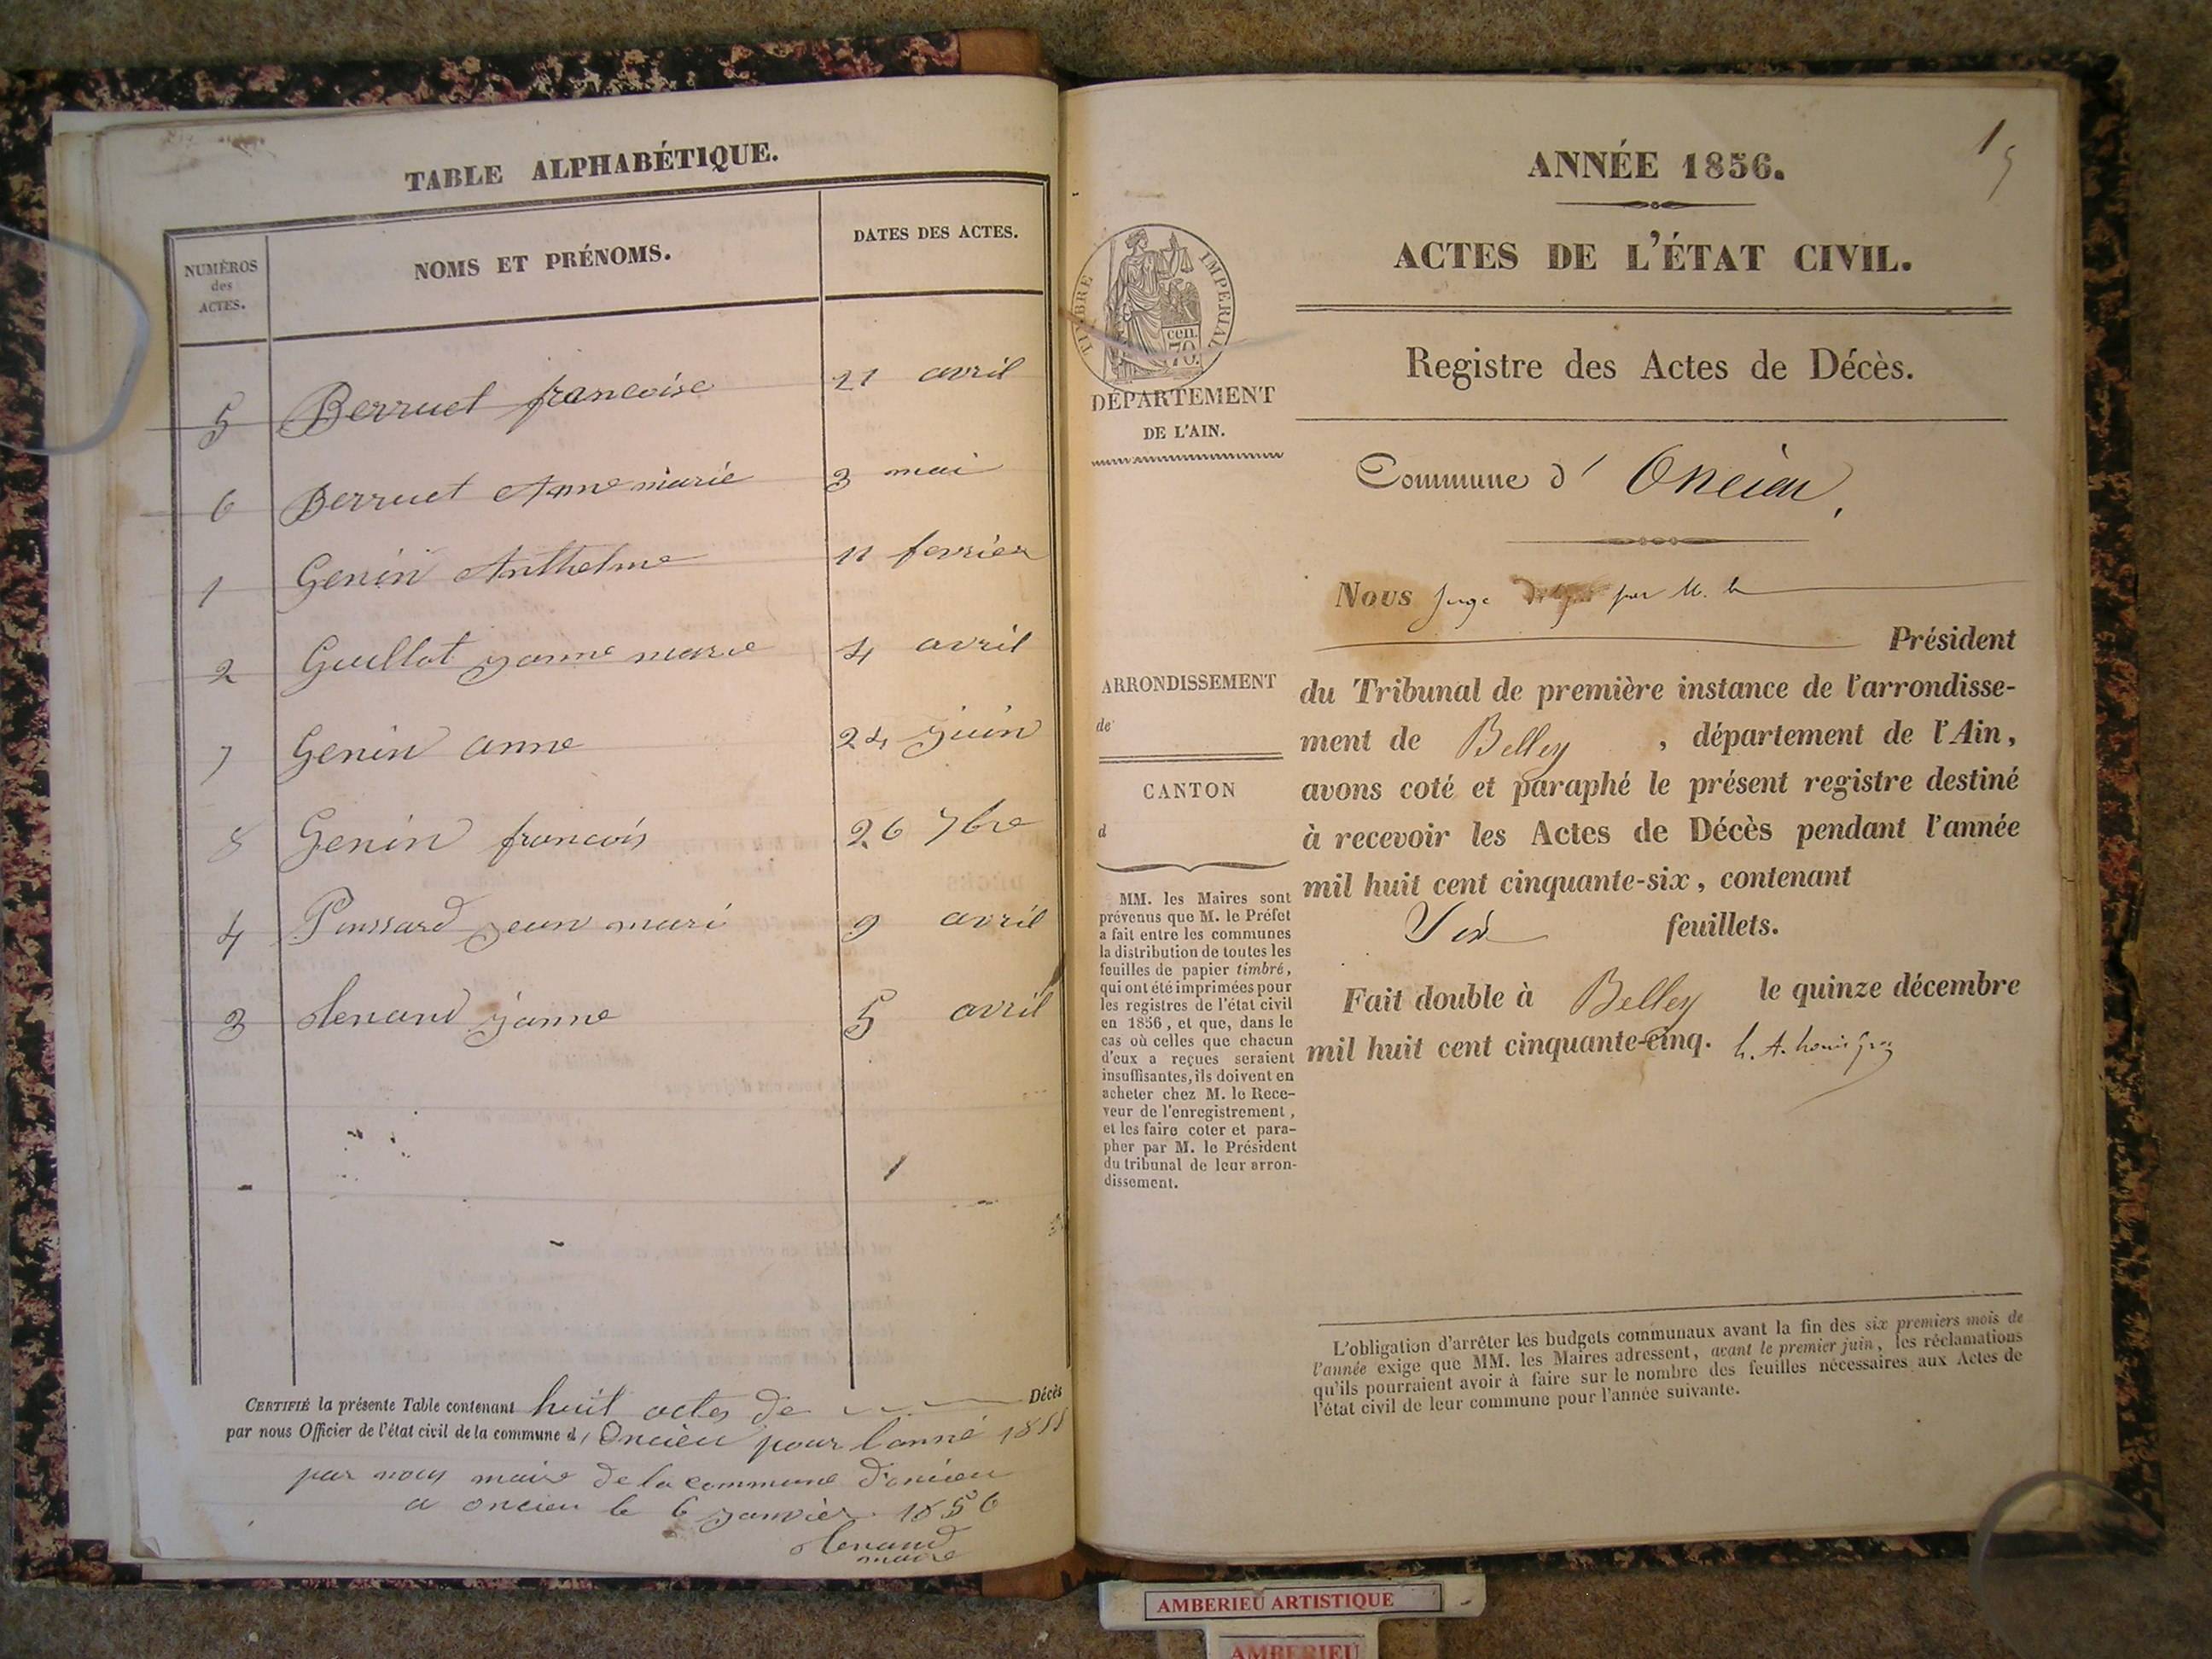 TABLE ALPHABÉTIQUE.
NUMÉROS des ACTES. NOMS ET PRÉNOMS. DATES DES ACTES.
5 Berruet francoise 21 avril
6 Berruet Anne marie 3 mai
1 Genin Anthelme 11 fevrier
2 Guillot janne marie 4 avril
7 Genin anne 24 juin
8 Genin francois 26 7bre
4 Ponssard jean mari 9 avril
3 janne 5 avril
CERTIFIÉ la présente Table contenant huit actes de Décès
par nous Officier de l'état civil de la commune d'Oncieu pour l'anné 1855
par nous maire de la commune d'oncieu
a oncieu le 6 janvier 1856
maire
1
ANNÉE 1856.
ACTES DE L'ÉTAT CIVIL.
Registre des Actes de Décès.
TIMBRE IMPERIAL
cen.
70.
DÉPARTEMENT
DE L'AIN.
Commune d' Oncieu,
Nous juge par M. le
Président
du Tribunal de première instance de l'arrondisse-
ment de Belley, département de l'Ain,
avons coté et paraphé le présent registre destiné
à recevoir les Actes de Décès pendant l'année
mil huit cent cinquante-six, contenant
Six feuillets.
Fait double à Belley le quinze décembre
mil huit cent cinquante-cinq.
ARRONDISSEMENT
de
CANTON
d
MM. les Maires sont
prévenus que M. le Préfet
a fait entre les communes
la distribution de toutes les
feuilles de papier timbré,
qui ont été imprimées pour
les registres de l'état civil
en 1856, et que, dans le
cas où celles que chacun
d'eux a reçues seraient
insuffisantes, ils doivent en
acheter chez M. le Rece-
veur de l'enregistrement,
et les faire coter et para-
pher par M. le Président
du tribunal de leur arron-
dissement.
L'obligation d'arrêter les budgets communaux avant la fin des six premiers mois de
l'année exige que MM. les Maires adressent, avant le premier juin, les réclamations
qu'ils pourraient avoir à faire sur le nombre des feuilles nécessaires aux Actes de
l'état civil de leur commune pour l'année suivante.
AMBERIEU ARTISTIQUE
AMBERIEU